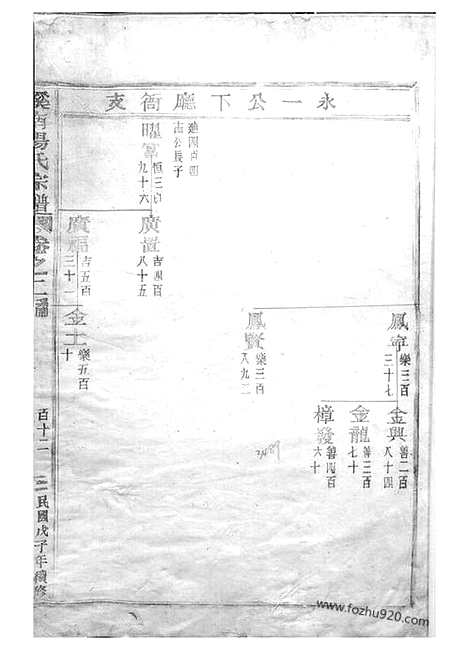 永一公下廳衙支
鳳寧
樂三百
三十七
金興
善二百
八十四
金龍
善三百
七十
樟發
善四百
六十
鳳賢
樂三百
八九二
進四百四
古公長子
曜
恒三百
九十六
廣置
吉四百
八十五
廣福
吉五百
三十一
金土
樂五百
十
溪南楊氏宗譜圖卷之二
百十二
民國戊子年續修
www.fozhu920.com